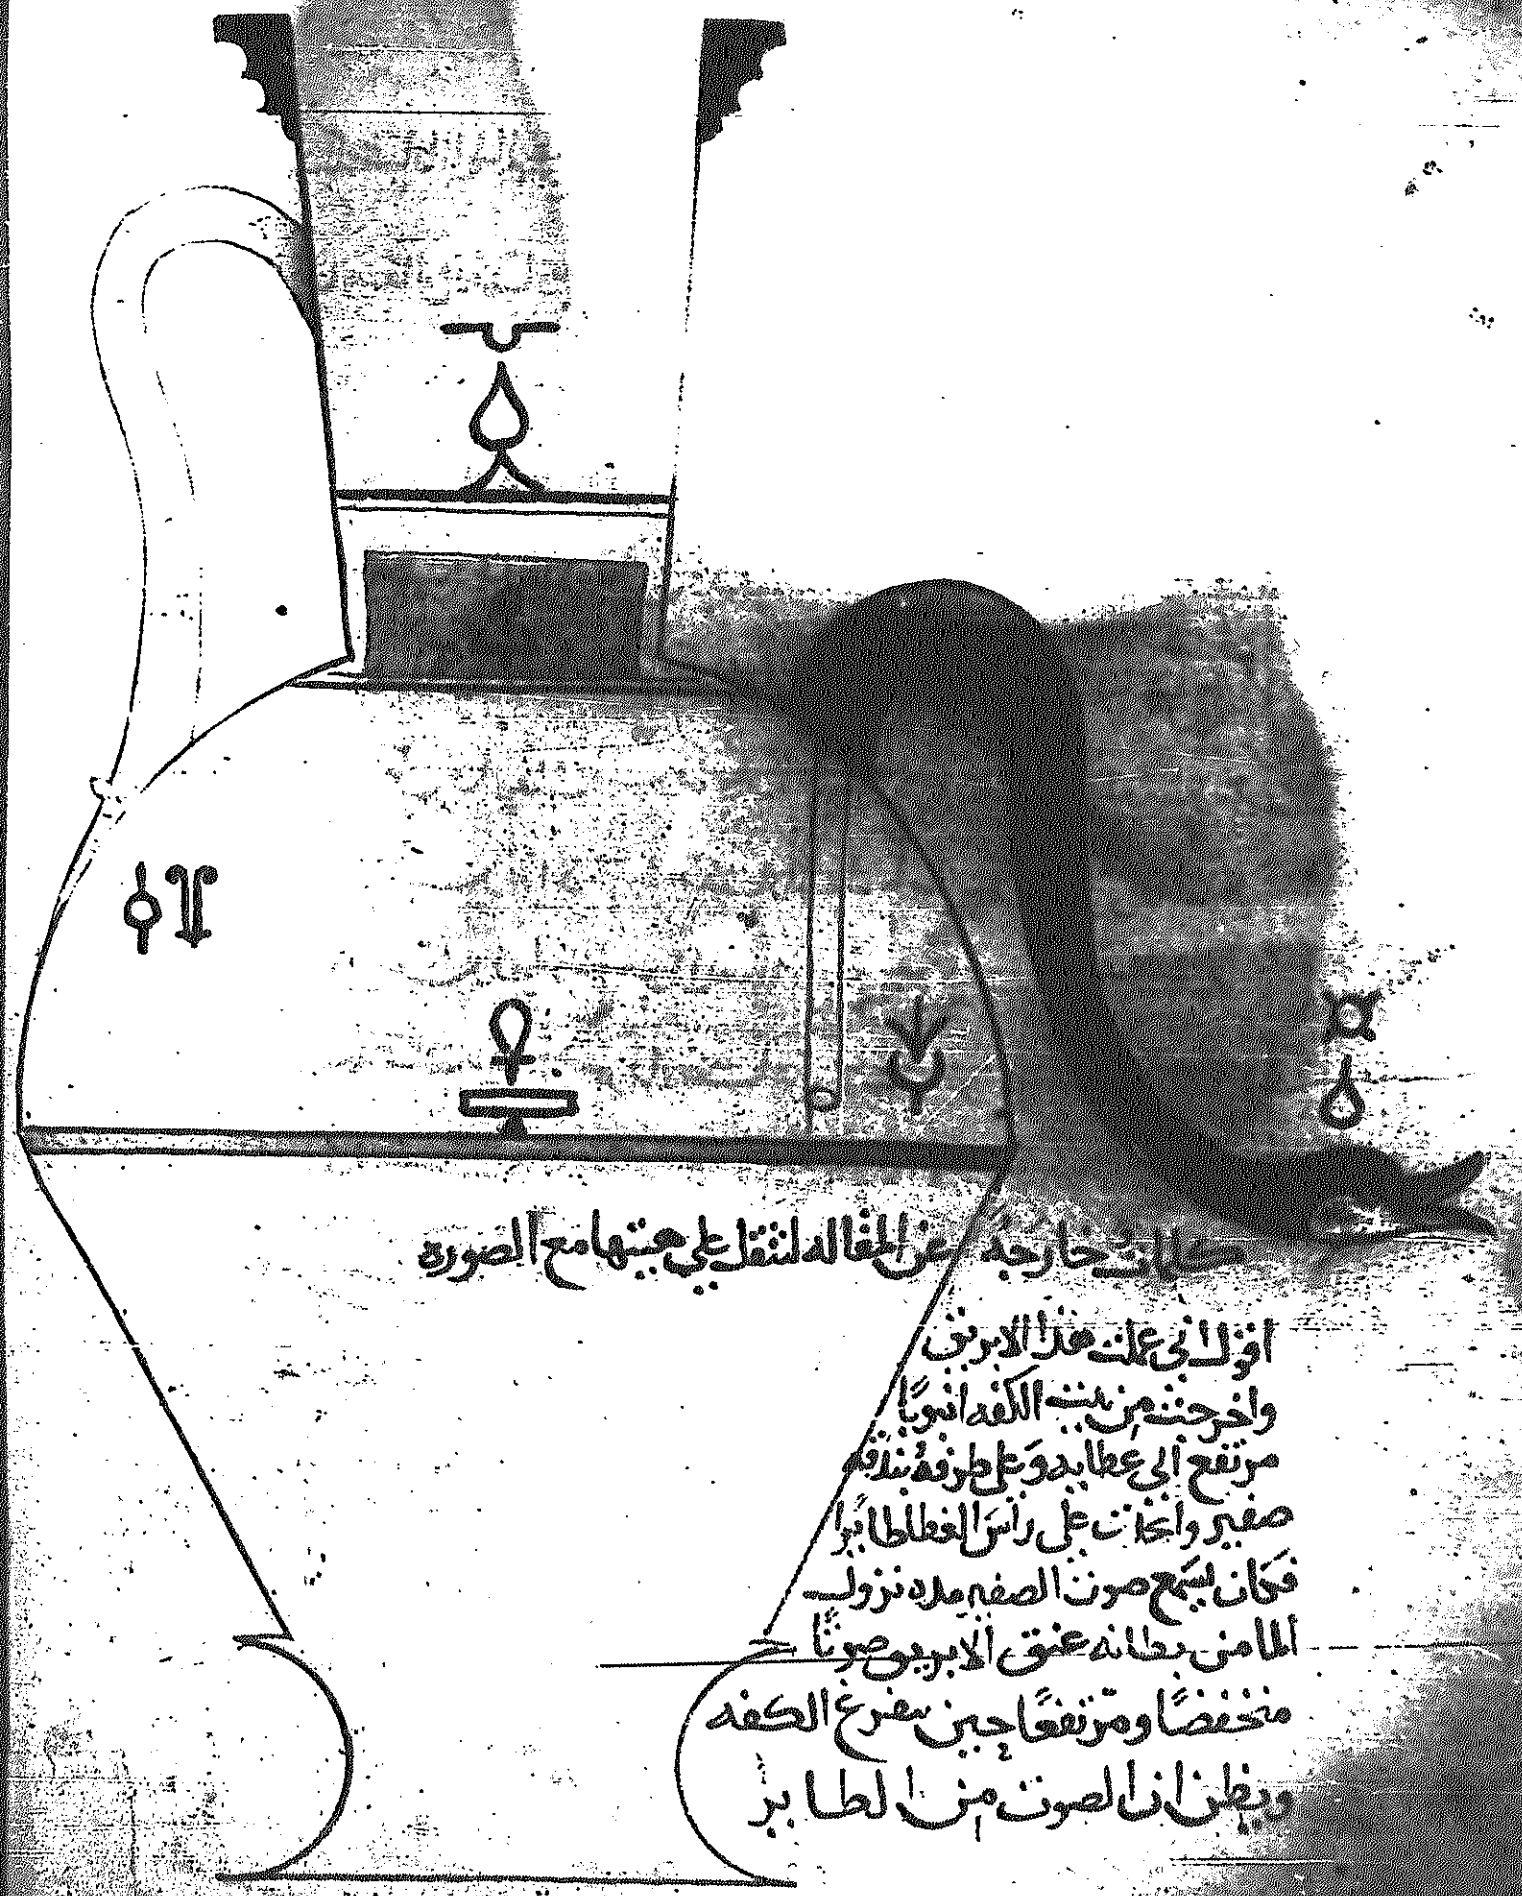 كلمات خارجة عن المقاله لتنقل على هيئتها مع الصوره
اقول انى عملت هذا الابريق
واخرجت من بيت الكفه انبوبًا
مرتفع الى غطايه وعلى طرفه بندقه
صفير واتخذت على رأس الغطا طائرا
فكان يسمع صوت الصفير مده نزول
الما من بطانه عنق الابريق صوتًا
منخفضًا ومرتفعًا حين يتفرغ الكفه
ويظن ان الصوت من الطاير